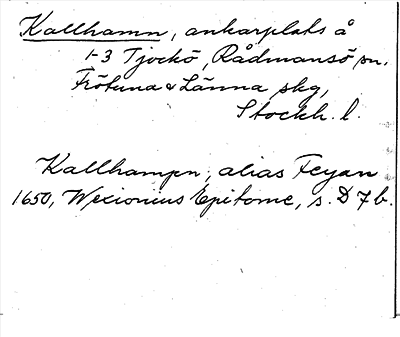 Kallhamn, ankarplats å
1-3 Tjockö, Rådmansö sn,
Frötuna & Länna skg,
Stockh. l.
Kallhampn, alias Feyan
1650, Wexionius Epitome, s. D 7 b.